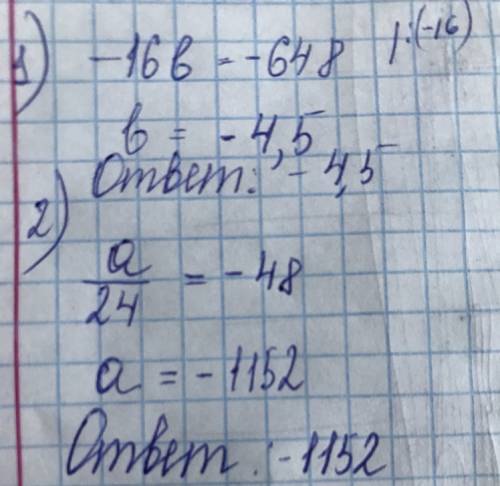 1) -16в = -648 |:(-16)
в = -4,5
Ответ: -4,5
2)
a/24 = -48
a = -1152
Ответ: -1152